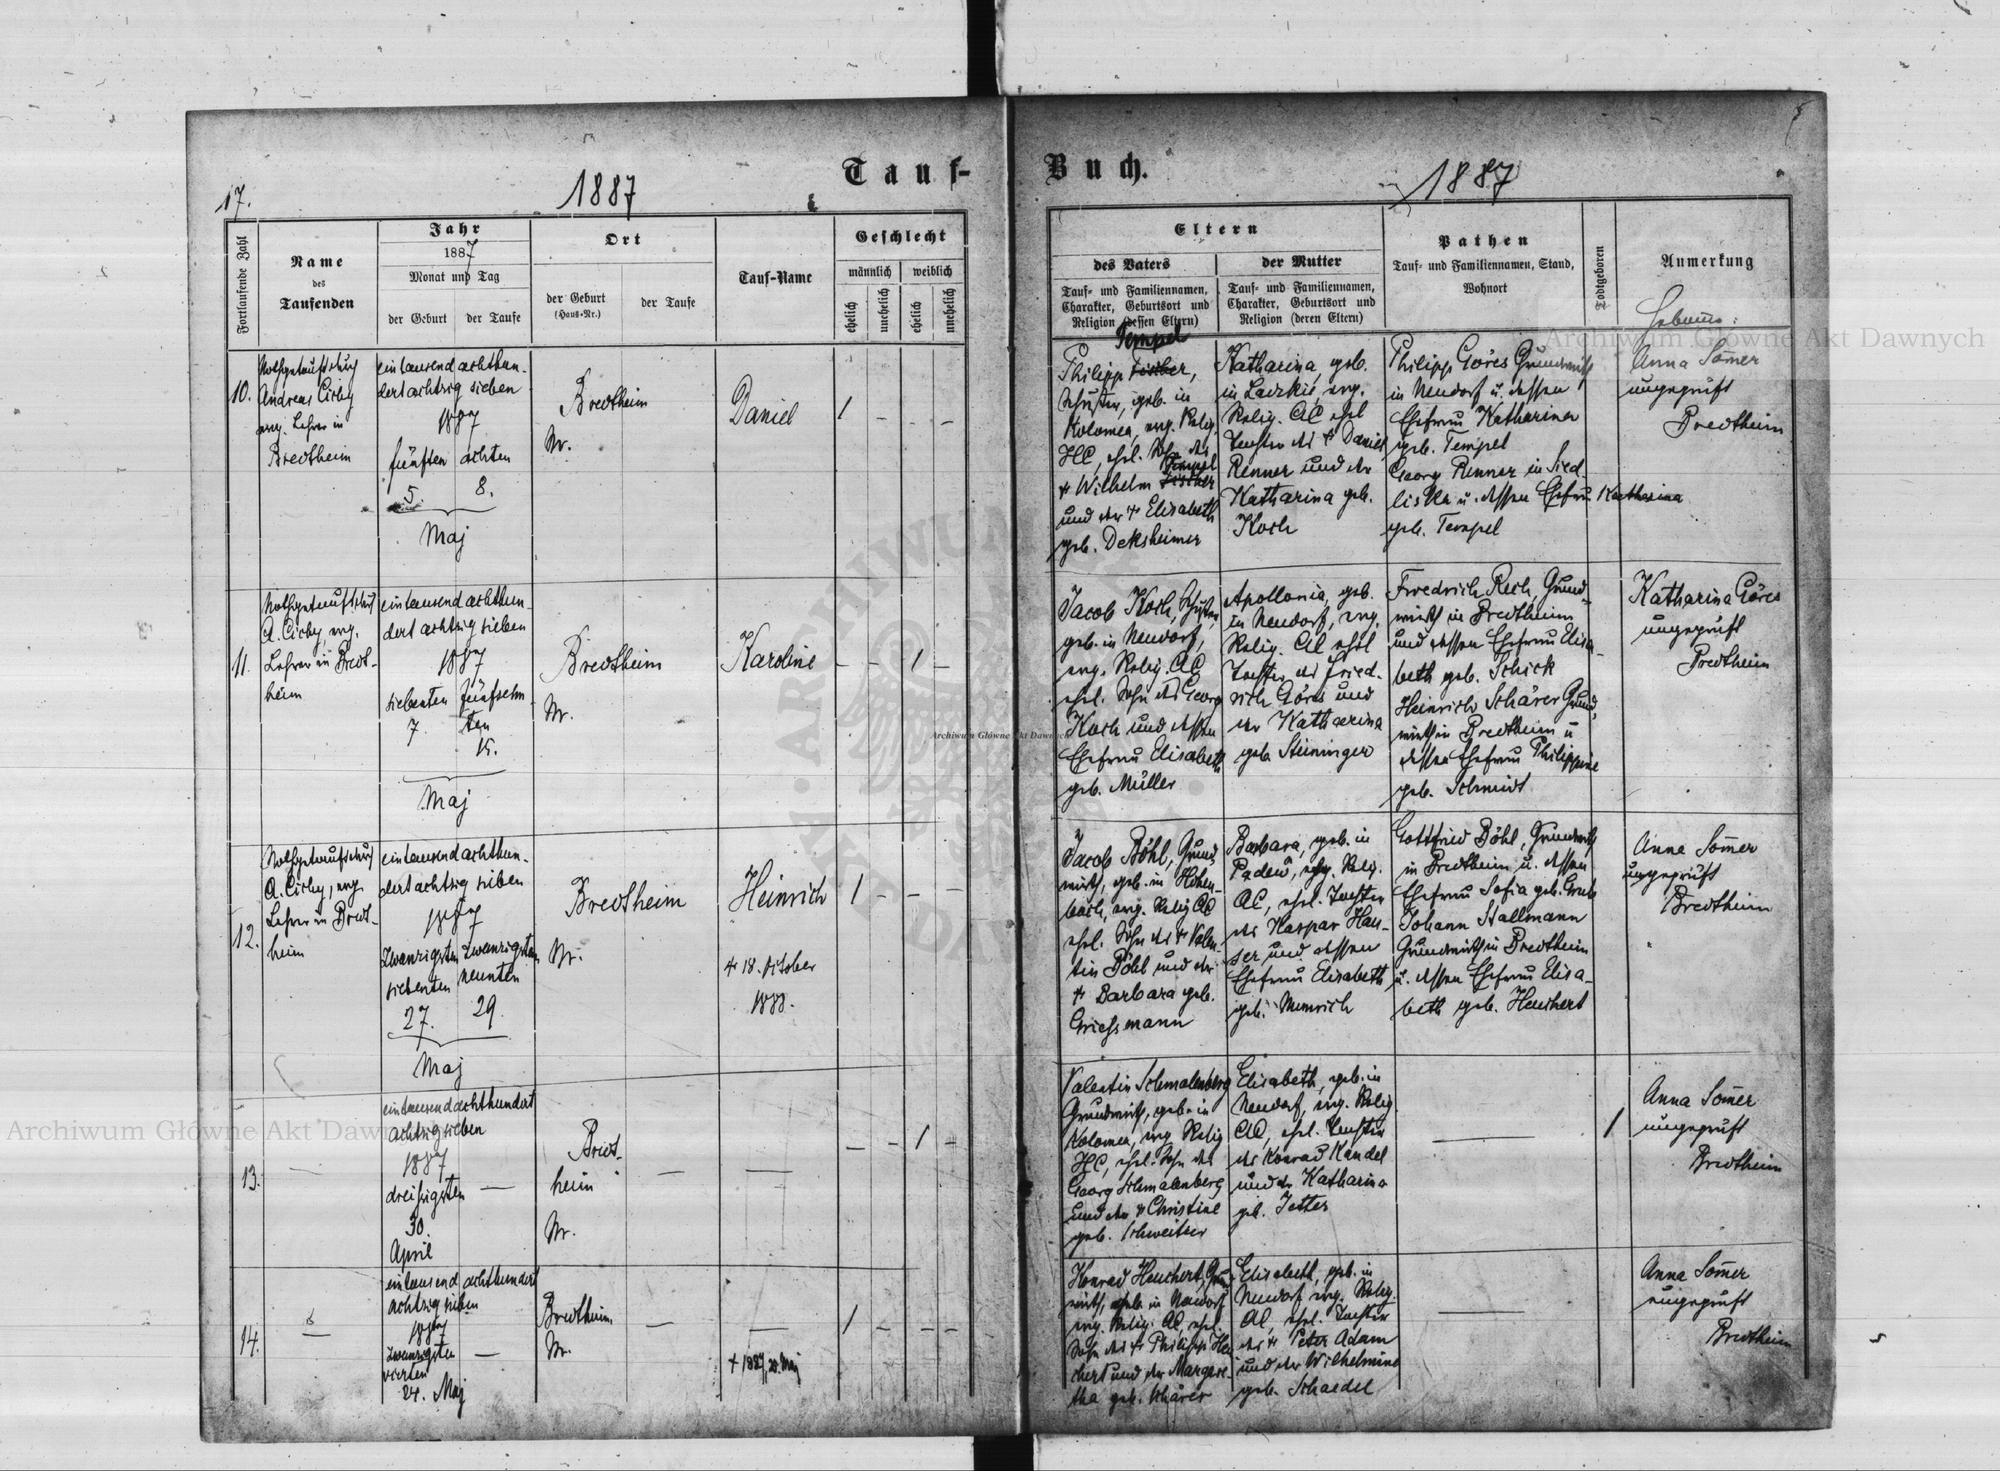 17.
1887
Tauf-
Fortlaufende Zahl
Name
des
Taufenden
Jahr
1887
Monat und Tag
der Geburt
der Taufe
Ort
der Geburt
(Haus-Nr.)
der Taufe
Tauf-Name
Geschlecht
männlich
weiblich
ehelich
unehelich
ehelich
unehelich
10.
Nothgetauft durch
Andreas Cirby
evg. Lehrer in
Bredtheim
eintausend achthun-
dert achtzig sieben
1887
fünften achten
5. 8.
Maj
Bredtheim
Nr.
Daniel
1 - - -
11.
Nothgetauft durch
A. Cirby, evg.
Lehrer in Bredt-
heim
eintausend achthun-
dert achtzig sieben
1887
siebenten fünfzehn
7. ten
15.
Maj
Bredtheim
Nr.
Karoline
- - 1 -
12.
Nothgetauft durch
A. Cirby, evg.
Lehrer in Bredt-
heim
eintausend achthun-
dert achtzig sieben
1887
zwanzigsten zwanzigsten
siebenten neunten
27. 29.
Maj
Bredtheim
Nr.
Heinrich
† 18. October
1888.
1 - - -
13.
eintausend achthundert
achtzig sieben
1887
dreisigsten
30.
April
Bredt-
heim
Nr.
- - 1 -
14.
eintausend achthundert
achtzig sieben
1887
zwanzigsten
vierten
24. Maj
Bredtheim
Nr.
† 1887, 24. Maj
1 - - -
Buch.
1887
Eltern
des Vaters
Tauf- und Familiennamen,
Charakter, Geburtsort und
Religion (dessen Eltern)
der Mutter
Tauf- und Familiennamen,
Charakter, Geburtsort und
Religion (deren Eltern)
Pathen
Tauf- und Familiennamen, Stand,
Wohnort
Todtgeboren
Anmerkung
Hebame:
Tempel
Philipp Fischer,
Schuster, geb. in
Kolomea, evg. Relig.
HC, ehl. Sohn des
Tempel
† Wilhelm Fischer
und der † Elisabeth
geb. Deksheimer
Katharina, geb.
in Laczkie, evg.
Relig. AC ehel
Tochter des † Daniel
Renner und der
Katharina geb.
Koch
Philipp Göres Grundwirth
in Neudorf u. dessen
Ehefrau Katharina
geb. Tempel
Georg Renner in Sied
liska u. dessen Ehefrau Katharina
geb. Tempel
Anna Som̄er
ungeprüft
Bredtheim
Jacob Koch, Schuster
geb. in Neudorf,
evg. Relig. AC
ehl. Sohn des Georg
Koch und dessen
Ehefrau Elisabeth
geb. Müller
Apollonia, geb.
in Neudorf, evg.
Relig. AC ehel
Tochter des Fried-
rich Göres und
der Katharina
geb. Steininger
Friedrich Rech, Grund-
wirth in Bredtheim
und dessen Ehefrau Elisa-
beth geb. Schick
Heinrich Schärer Grund,
wirth in Bredtheim u
dessen Ehefrau Philippine
geb. Schmidt
Katharina Göres
ungeprüft
Bredtheim
Jacob Böhl, Grund
wirth, geb. in Hohen-
bach, evg. Relig AC
ehl. Sohn des † Valen-
tin Böhl und der
† Barbara geb.
Griessmann
Barbara, geb. in
Padew, evg. Relig.
AC, ehel. Tochter
des Kaspar Hau-
ser und dessen
Ehefrau Elisabeth
geb.
Gottfried Böhl, Grundwirth
in Bredtheim u. dessen
Ehefrau Sofia geb.
Johann Stallmann
Grundwirth in Bredtheim
u. dessen Ehefrau Elisa-
beth geb. Heuchert
Anna Som̄er
ungeprüft
Bredtheim
Valentin Schmalenberg
Grundwirth, geb. in
Kolomea, evg Relig
HC, ehel. Sohn des
Georg Schmalenberg
und der † Christine
geb. Schweitzer
Elisabeth, geb. in
Neudorf, evg. Relig.
AC, ehel. Tochter
des Konrad Kandel
und der Katharina
geb. Jetter
1
Anna Som̄er
ungeprüft
Bredtheim
Konrad Heuchert, Grund
wirth, geb. in Neudorf
evg. Relig. AC, ehel.
Sohn des † Philipp Heu
chert und der Margare-
tha geb. Schärer
Elisabeth, geb. in
Neudorf evg. Relig.
AC, ehel. Tochter
des † Peter Adam
und der Wilhelmine
geb. Schaedel
Anna Som̄er
ungeprüft
Bredtheim
Archiwum Główne Akt Dawnych
Archiwum Główne Akt Dawnych
Archiwum Główne Akt Dawnych